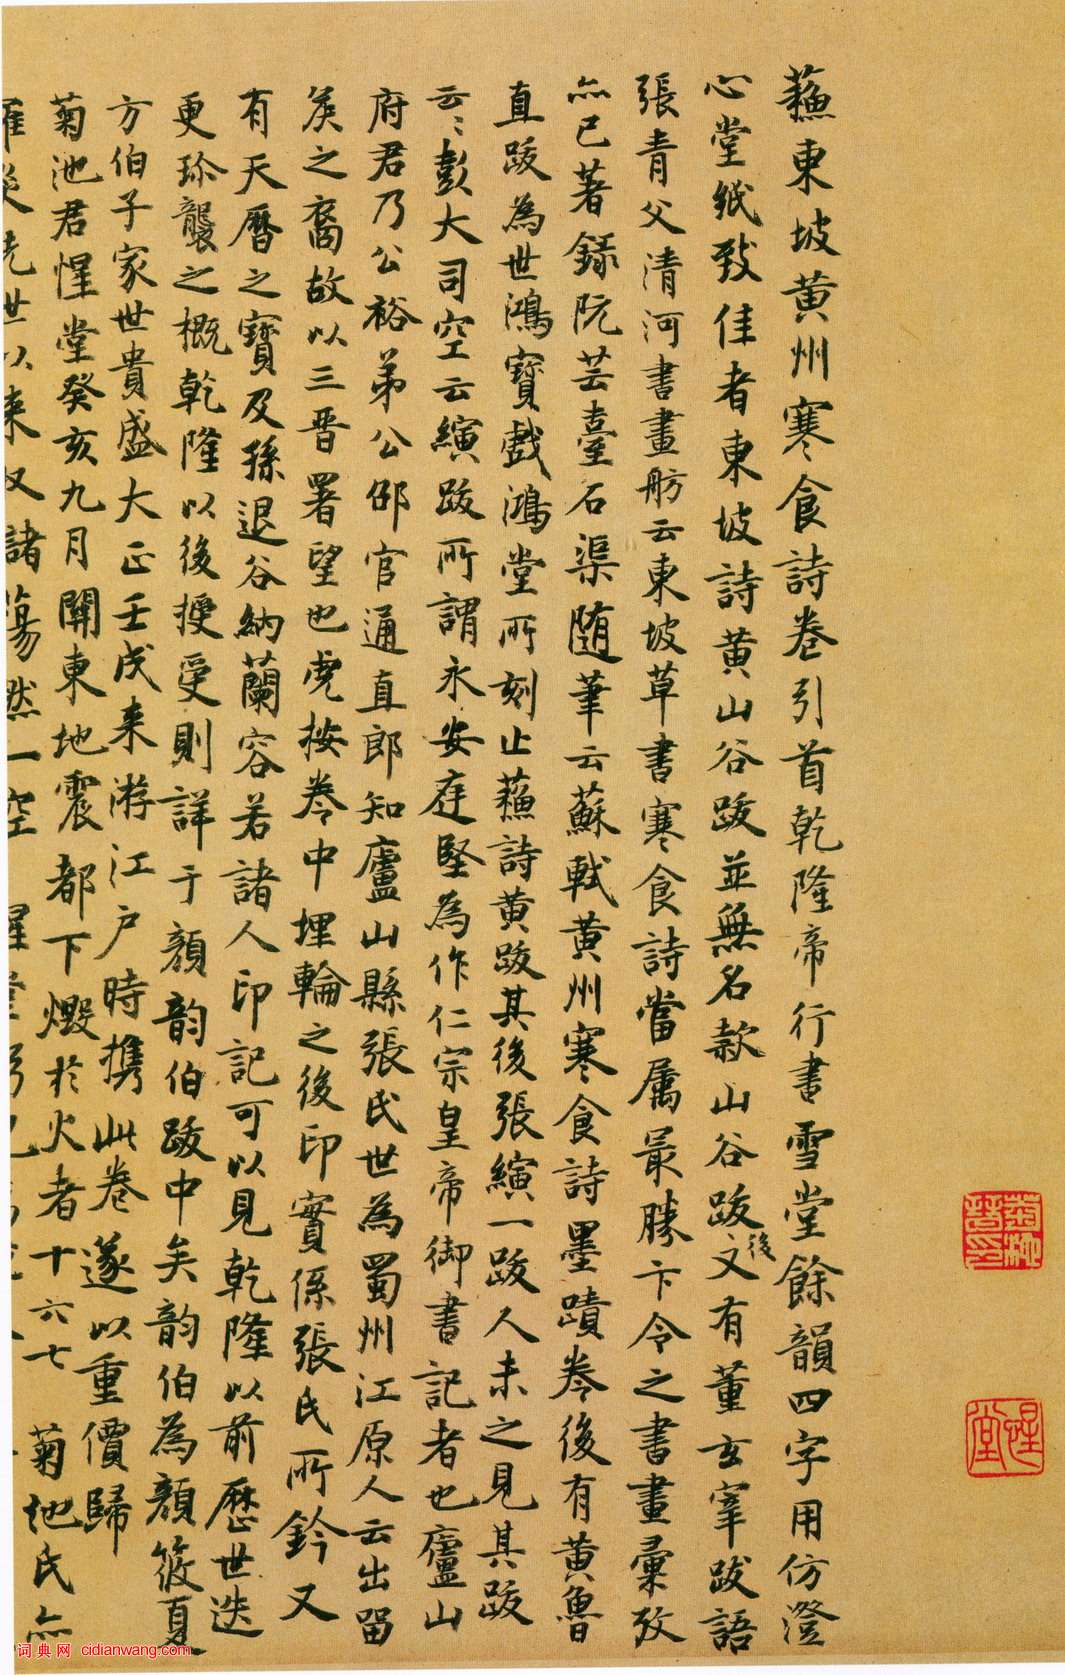 蘓東坡黃州寒食詩卷引首乾隆帝行書雪堂餘韻四字用仿澄
心堂紙致佳者東坡詩黃山谷跋並無名款山谷跋後文有董玄宰跋語
張青父清河書畫舫云東坡草書寒食詩當属最勝卞令之書畫彙攷
亦已著錄阮芸臺石渠随筆云蘇軾黃州寒食詩墨蹟卷後有黃魯
直跋為世鴻寶戲鴻堂所刻止蘓詩黃跋其後張縯一跋人未之見其跋
云〻彭大司空云縯跋所謂永安庭堅為作仁宗皇帝御書記者也廬山
府君乃公裕弟公邵官通直郎知廬山縣張氏世為蜀州江原人云出留
矦之裔故以三晋署望也虎按卷中埋輪之後印實係張氏所鈐又
有天曆之寶及孫退谷納蘭容若諸人印記可以見乾隆以前歷世迭
更珎襲之概乾隆以後授受則詳于顏韵伯跋中矣韵伯為顏筱夏
方伯子家世貴盛大正壬戌来游江户時携此卷遂以重價歸
菊池君惺堂癸亥九月關東地震都下燬於火者十六七菊池氏亦
世以来又諸蕩然一空
菊池晉印
惺堂
词典网 cidianwang.com